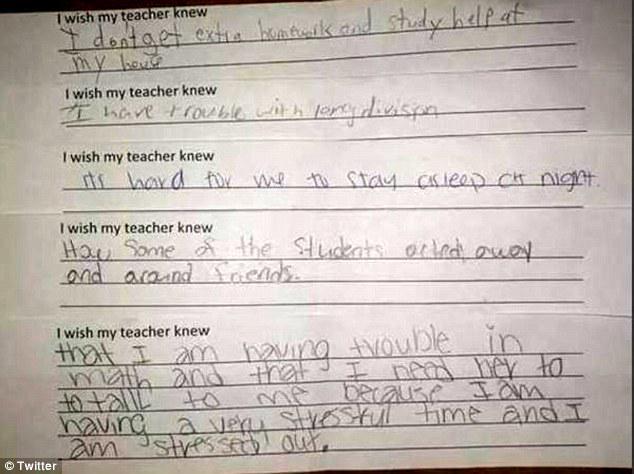 I wish my teacher knew
I dont get extra homework and study help at
my house
I wish my teacher knew
I have trouble with long division
I wish my teacher knew
its hard for me to stay asleep at night.
I wish my teacher knew
How some of the students acted away
and around friends.
I wish my teacher knew
that I am having trouble in
math and that I need her to
to talk to me because I am
having a very stressful time and I
am stressed out.
© Twitter